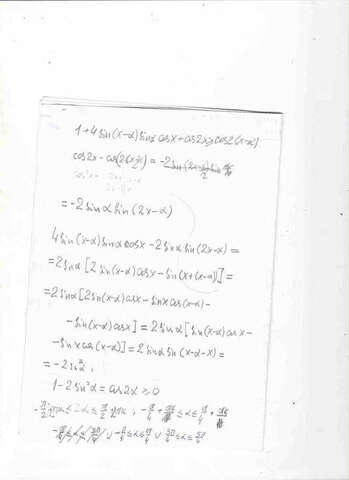 1+4sin(x-α)sinα cosx+cos2x≥cos2(x-α)
cos2x-cos(2(x-α))=
=-2sinα sin(2x-α)
4sin(x-α)sinα cosx-2sinα sin(2x-α)=
=2sinα[2sin(x-α)cosx-sin(x+(x-α))]=
=2sinα[2sin(x-α)cosx-sinx cos(x-α)-
-sin(x-α)cosx]=2sinα[sin(x-α)cosx-
-sinx cos(x-α)]=2sinα sin(x-α-x)=
=-2sin²α,
1-2sin²α=cos2α≥0
≤2α≤ ; -π/4+ ≤α≤π/4+
∪-π/4≤α≤π/4∪3π/4≤α≤5π/4